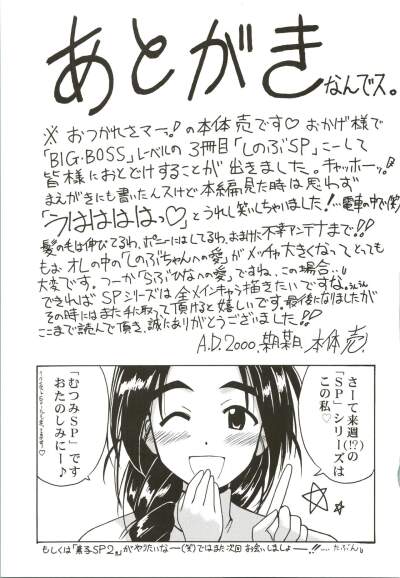 あとがき
なんでス。
※ おつかれさマー。!の本体売です♡ おかげ様で
「BIG・BOSS」レーベルの3冊目「しのぶSP」こーして
皆様におとどけすることが出きました。キャッホーッ!
まえがきにも書いたんスけど本編見た時は思わず
「うはははっ♡」とうれし笑いしちゃいました!…電車の中で(笑)
髪の毛は伸びてるわ、ポニーにはしてるわ、おまけに不幸アンテナまで!!
もぉ オレの中の「しのぶちゃんへの愛」がメッチャ大きくなってとっても
大変です。つーか「らぶひなへの愛」ですね、この場合…
できれば SPシリーズは全メインキャラ描きたいですな。
その時にはまた手に取って頂けると嬉しいです。最後になりましたが
ここまで読んで頂き、誠にありがとうございました!!
A.D.2000. 本体 売
さーて来週(!?)の
「SP」シリーズは
この私♡
「むつみSP」です
おたのしみにー♪
もしくは「素子SP2」がやりたいなー(笑)ではまた次回お会いしましょー!!……たぶん